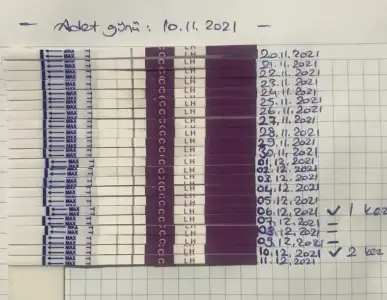 - Adet günü: 10.11.2021 -
20.11.2021
21.11.2021
22.11.2021
23.11.2021
24.11.2021
25.11.2021
26.11.2021
27.11.2021
28.11.2021
29.11.2021
30.11.2021
01.12.2021
02.12.2021
03.12.2021
04.12.2021
05.12.2021
06.12.2021 ✓ 1 kez
07.12.2021 -
08.12.2021 -
09.12.2021 -
10.12.2021 ✓ 2 kez
11.12.2021
MAX
C
LH